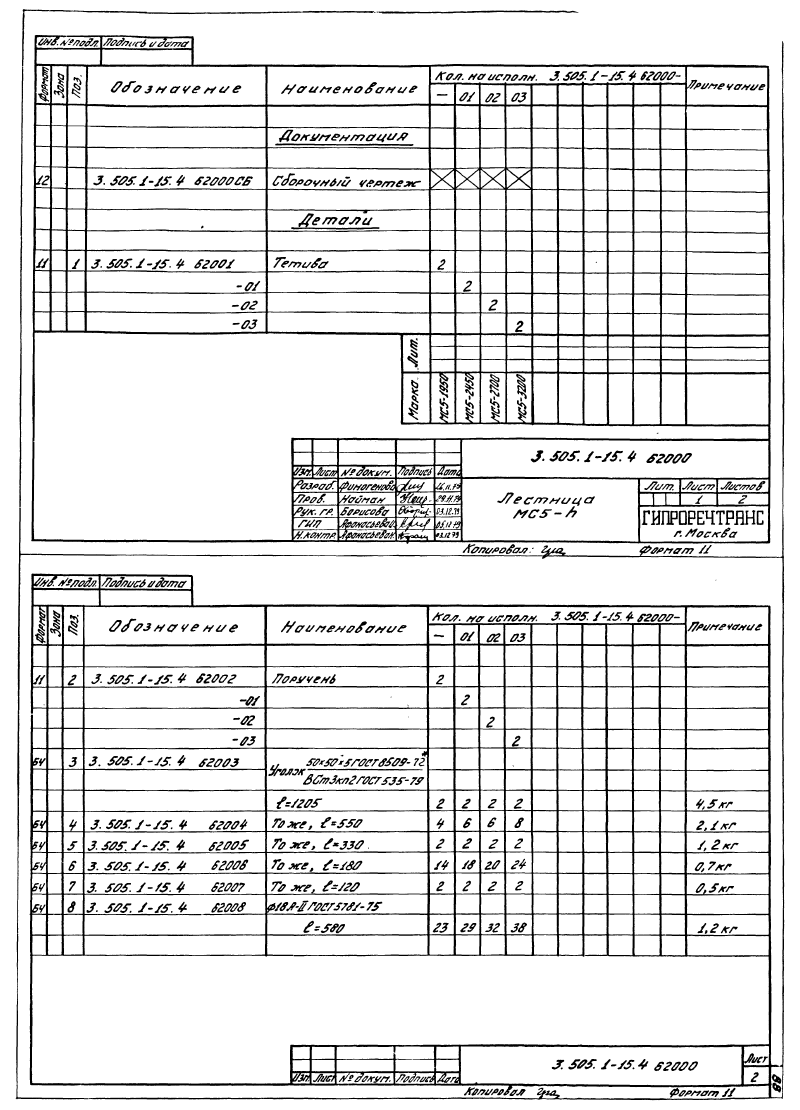 Инв. № подл. Подпись и дата
Формат Зона Поз. Обозначение Наименование Кол. на исполн. 3.505.1-15.4 62000- Примечание
— 01 02 03
Документация
12 3.505.1-15.4 62000СБ Сборочный чертеж
Детали
11 1 3.505.1-15.4 62001 Тетива 2
-01 2
-02 2
-03 2
Лит.
Марка МС5-1950 МС5-2450 МС5-2700 МС5-3200
3.505.1-15.4 62000
Изм. Лист № докум. Подпись Дата
Разраб. Финогенова 26.11.79
Пров. Найман 29.11.79
Рук. гр. Борисова 03.12.79
ГИП Афанасьева 05.12.79
Н.контр. Афанасьева 03.12.79
Лестница
МС5-h
Лит. Лист Листов
1 2
ГИПРОРЕЧТРАНС
г. Москва
Копировал: Формат 11
Инв. № подл. Подпись и дата
Формат Зона Поз. Обозначение Наименование Кол. на исполн. 3.505.1-15.4 62000- Примечание
— 01 02 03
11 2 3.505.1-15.4 62002 Поручень 2
-01 2
-02 2
-03 2
БЧ 3 3.505.1-15.4 62003 Уголок 50×50×5 ГОСТ 8509-72*
ВСт3кп2 ГОСТ 535-79
ℓ=1205 2 2 2 2 4,5 кг
БЧ 4 3.505.1-15.4 62004 То же, ℓ=550 4 6 6 8 2,1 кг
БЧ 5 3.505.1-15.4 62005 То же, ℓ=330 2 2 2 2 1,2 кг
БЧ 6 3.505.1-15.4 62006 То же, ℓ=180 14 18 20 24 0,7 кг
БЧ 7 3.505.1-15.4 62007 То же, ℓ=120 2 2 2 2 0,5 кг
БЧ 8 3.505.1-15.4 62008 ф18А-II ГОСТ 5781-75
ℓ=580 23 29 32 38 1,2 кг
Изм. Лист № докум. Подпись Дата
3.505.1-15.4 62000
Лист
2
88
Копировал Формат 11